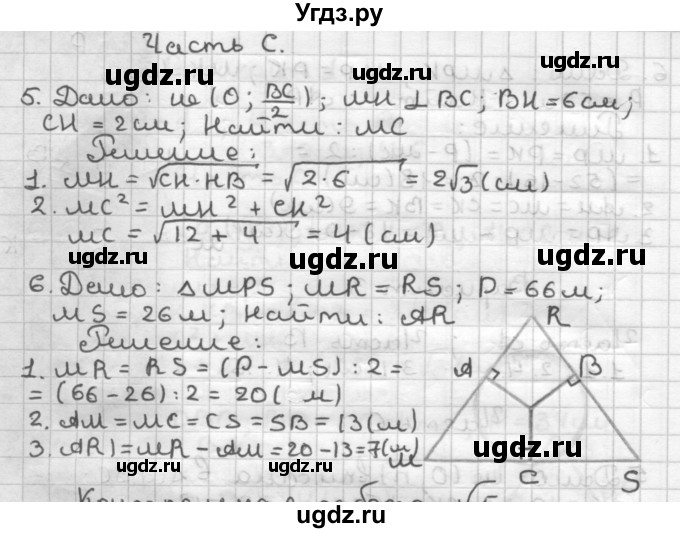 Угдз.ру
Часть С.
5. Дано: не (O; BC/2); MH ⊥ BC; BH = 6 см;
CH = 2 см; Найти: MC
Решение:
1. MH = √CH·HB = √2·6 = 2√3 (см)
2. MC² = MH² + CH²
MC = √12 + 4 = 4 (см)
6. Дано: △MPS; MR = RS; P = 66 м;
MS = 26 м; Найти: AR
Решение:
1. MR = RS = (P - MS) : 2 =
= (66 - 26) : 2 = 20 ( м)
2. AM = MC = CS = SB = 13 (м)
3. AR) = MR - AM = 20 - 13 = 7 (м)
R
A
B
M
C
S
ugdz.ru
ugdz.ru
ugdz.ru
ugdz.ru
ugdz.ru
ugdz.ru
ugdz.ru
ugdz.ru
ugdz.ru
ugdz.ru
ugdz.ru
ugdz.ru
ugdz.ru
ugdz.ru